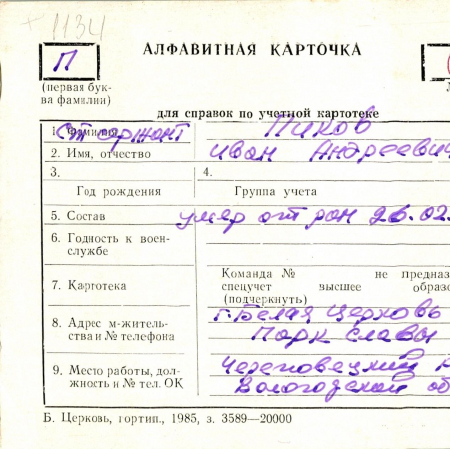 + 1134
П
АЛФАВИТНАЯ КАРТОЧКА
(первая бук-
ва фамилии)
для справок по учетной картотеке
1. Фамилия Пиков
Ст сержант
2. Имя, отчество Иван Андреевич
3. 4.
Год рождения Группа учета
5. Состав умер от ран 26.02.
6. Годность к воен-
службе
7. Картотека
Команда № не предназ
спецучет высшее образо
(подчеркнуть)
8. Адрес м-житель-
ства и № телефона
г. Белая Церковь
Парк Славы
9. Место работы, дол-
жность и № тел. ОК
Череповецкий
Вологодской об
Б. Церковь, гортип., 1985, з. 3589—20000